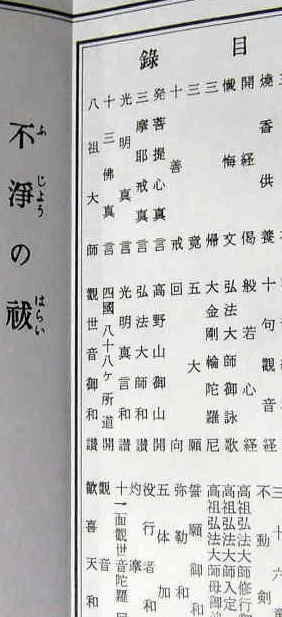 目錄
燒香供養
開経偈
懺悔文
三帰
三竟
十善戒
発菩提心真言
三摩耶戒真言
光明真言
十三佛真言
八祖大師
十句観音経
般若心経
弘法大師御詠歌
大金剛輪陀羅尼
五大願
回向
高野山御山開
弘法大師和讃
光明真言和讃
四國八十八ヶ所道開
觀世音御和讃
三十六童
不動剣
高祖弘法大師修行御
高祖弘法大師入定
高祖弘法大師母御
誓願御和
弥勒御和
五体加
役行者和
十一面觀世音陀羅尼
觀音
歡喜天和
不淨の祓
ふじょう はらい